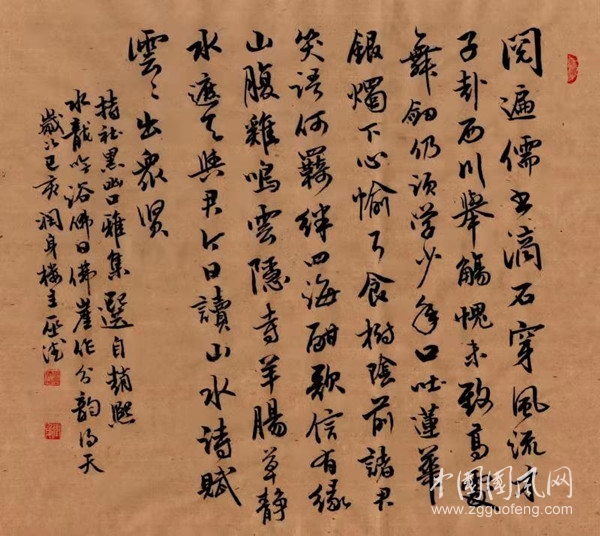 閱遍儒書滴石穿風流才
子赴西川舉觴愧未致高
舞劍仍須學少年口吐蓮華
銀燭下心愉乃食樹陰前諸君
笑語何羈絆四海酣歌信有緣
山腹雞鳴雲隱寺羊腸草靜
水遮天與君今日讀山水詩賦
雲〻出眾賢
持社黑幽口雅集選自趙熙
水龍吟浴佛日佛崖作分韻得天
歲次己亥潤身樓主
中國國風网
www.zgguofeng.com